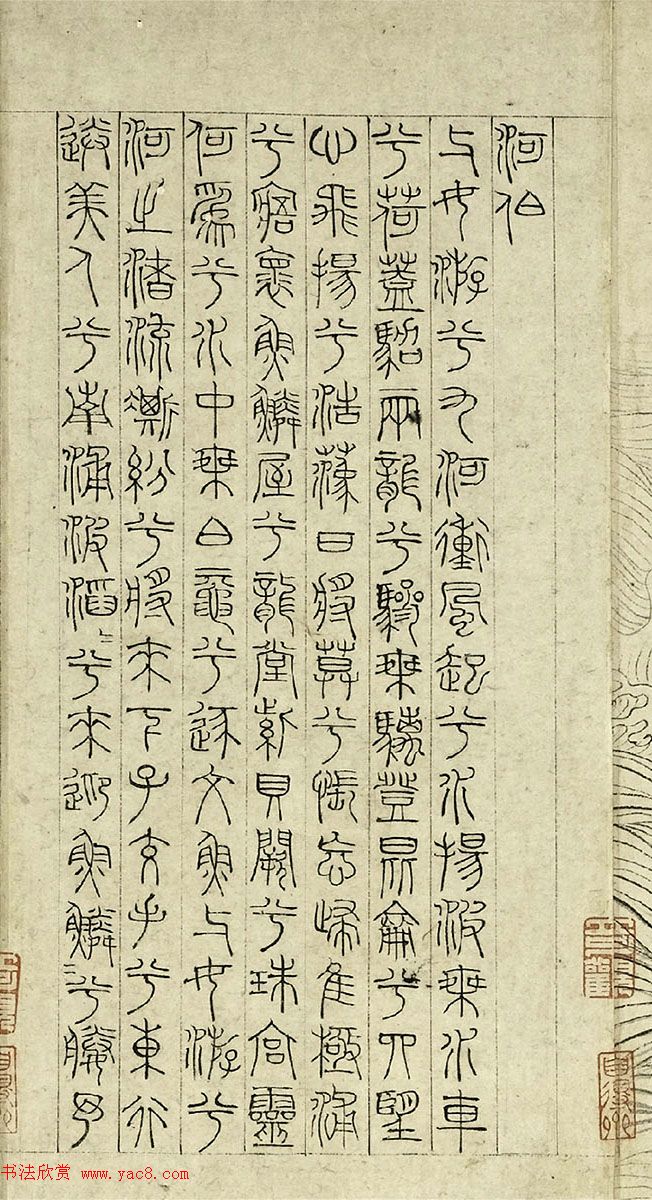 河伯
与女游兮九河衝風起兮水揚波乘水車
兮荷蓋駕兩龍兮驂乘螭登昆侖兮四望
心飛揚兮浩蕩日將莫兮悵忘歸惟極浦
兮寤懷魚鱗屋兮龍堂紫貝闕兮珠宮靈
何爲兮水中乘白黿兮逐文魚与女游兮
河之渚流澌紛兮將來下子交手兮東行
送美人兮南浦波滔〻兮來迎魚鱗〻兮媵予
书法欣赏 www.yac8.com